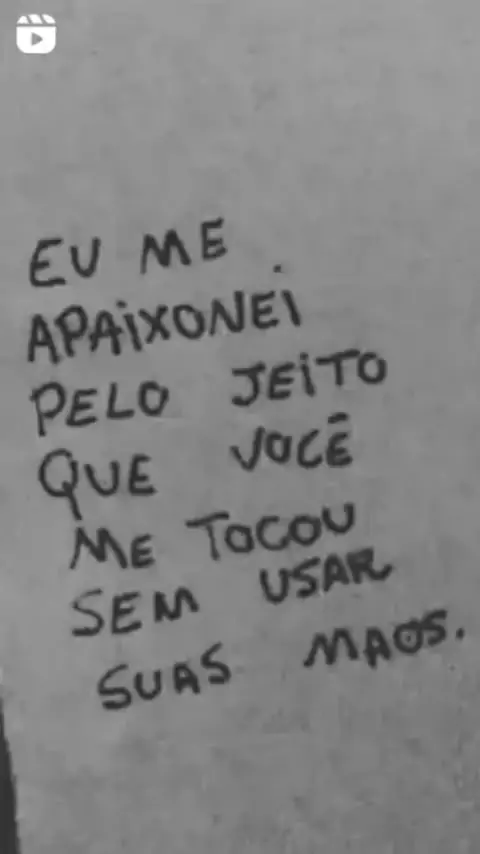 EU ME
APAIXONEI
PELO JEITO
QUE VOCÊ
ME TOCOU
SEM USAR
SUAS MAOS.